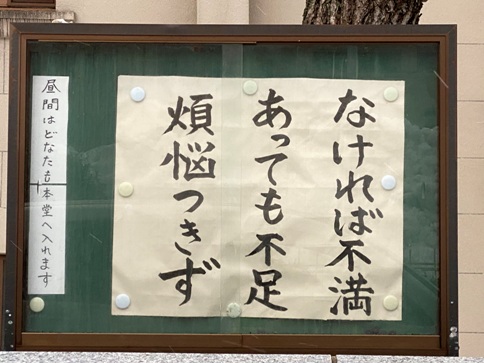 なければ不満
あっても不足
煩悩つきず
昼間はどなたも本堂へ入れます